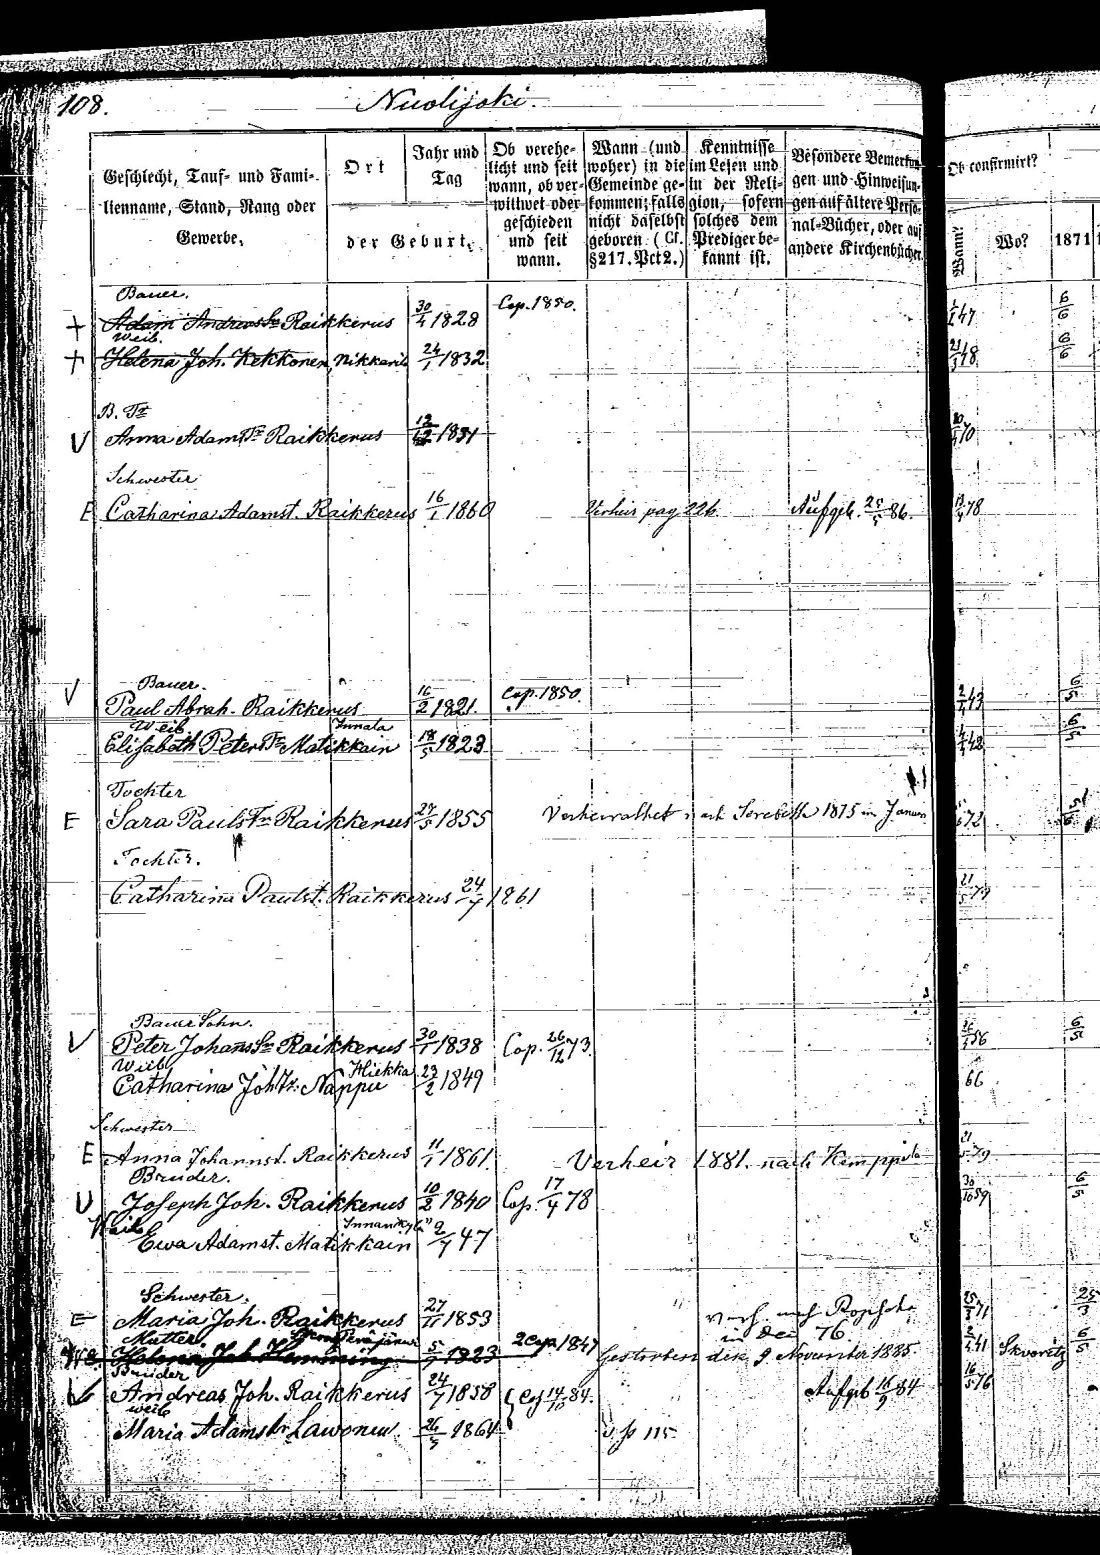 108. Nuolijoki.
Geschlecht, Tauf- und Fami-
lienname, Stand, Rang oder
Gewerbe.
Ort
Jahr und
Tag
der Geburt.
Ob verehe-
licht und seit
wann, ob ver-
wittwet oder
geschieden
und seit
wann.
Wann (und
woher) in die
Gemeinde ge-
kommen; falls
nicht daselbst
geboren (Cf.
§217. Pct 2.)
Kenntnisse
im Lesen und
in der Reli-
gion, sofern
solches dem
Prediger be-
kannt ist.
Besondere Bemerkun-
gen und Hinweisun-
gen auf ältere Perso-
nal-Bücher, oder auf
andere Kirchenbücher.
Ob confirmirt?
Wann?
Wo?
1871
Bauer.
+ Adam Andreas Sn Raikkerus 30/4 1828 Cop. 1850. 47 6/6
Weib.
+ Helena Joh. Kekkonen, Nikkaris 24/1 1832 21/3 48 6/6
B. Tr
V Anna Adams Tr Raikkerus 1851 70
Schwester
E Catharina Adamst. Raikkerus 16/1 1860 Verheir pag 226. Aufgeb. 25/5 86. 78
Bauer.
V Paul Abrah. Raikkerus 16/2 1821. Cop. 1850. 43 6/5
Weib Innala
Elisabeth Peters Tr Matikkain 18/5 1823 48 6/5
Tochter
E Sara Pauls Tr Raikkerus 27/5 1855 Verheirathet nach 1875 in Januar 72
Tochter.
Catharina Paulst. Raikkerus 24/7 1861 21/5 79
Bauer Sohn.
V Peter Johans Sn Raikkerus 30/1 1838 Cop. 26/12 73. 56 6/5
Weib Hiekka
Catharina Joh Tr. Nappu 23/2 1849 66
Schwester
E Anna Johannst. Raikkerus 11/1 1861 Verheir 1881. nach 21/5 79
Bruder.
V Joseph Joh. Raikkerus 10/2 1840 Cop. 17/4 78 30/10 59 6/5
Weib
Ewa Adamst. Matikkain 2/7 47
Schwester.
E Maria Joh. Raikkerus 27/11 1853 nach Ropscha 25/3 71 25/3
Mutter in 76
Helena Joh. Hemming 5/9 1823 2 Cop. 1847 Gestorben den 9 November 1885 41 Skworitz 6/5
Bruder
V Andreas Joh. Raikkerus 24/7 1858 Cop 14/10 84. Aufgeb 16/9 84 16/5 76
Weib
Maria Adamstr Lawonen. 26/5 1864 115